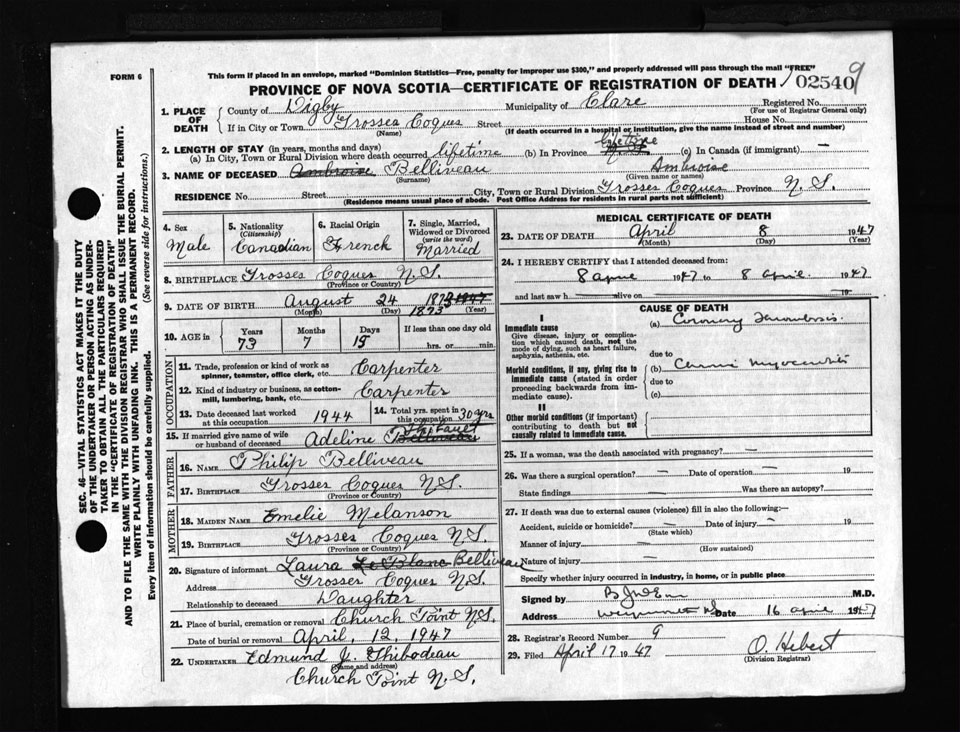 This form if placed in an envelope, marked "Dominion Statistics—Free, penalty for improper use $300," and properly addressed will pass through the mail "FREE"
FORM 6
PROVINCE OF NOVA SCOTIA—CERTIFICATE OF REGISTRATION OF DEATH 02540 9
1. PLACE OF DEATH
County of Digby Municipality of Clare Registered No.
(For use of Registrar General only)
If in City or Town Grosses Coques Street House No.
(Name) (If death occurred in a hospital or institution, give the name instead of street and number)
2. LENGTH OF STAY (in years, months and days)
(a) In City, Town or Rural Division where death occurred lifetime (b) In Province lifetime (c) In Canada (if immigrant) —
3. NAME OF DECEASED Ambroise Belliveau Ambroise
(Surname) (Given name or names)
RESIDENCE No. Street City, Town or Rural Division Grosses Coques Province N. S.
(Residence means usual place of abode. Post Office Address for residents in rural parts not sufficient)
4. Sex
Male
5. Nationality
(Citizenship)
Canadian
6. Racial Origin
French
7. Single, Married, Widowed or Divorced
(write the word)
Married
8. BIRTHPLACE Grosses Coques N.S.
(Province or Country)
9. DATE OF BIRTH August 24 1873 1947
(Month) (Day) 1873 (Year)
10. AGE in
Years Months Days If less than one day old
73 7 15 hrs. or min.
OCCUPATION
11. Trade, profession or kind of work as spinner, teamster, office clerk, etc. Carpenter
12. Kind of industry or business, as cotton-mill, lumbering, bank, etc. Carpenter
13. Date deceased last worked at this occupation 1944
14. Total yrs. spent in this occupation 30 yrs
15. If married give name of wife or husband of deceased Adeline Belliveau
FATHER
16. NAME Philip Belliveau
17. BIRTHPLACE Grosses Coques N.S.
(Province or Country)
MOTHER
18. MAIDEN NAME Emelie Melanson
19. BIRTHPLACE Grosses Coques N.S.
(Province or Country)
20. Signature of informant Laura Le Blanc Belliveau
Address Grosses Coques N.S.
Relationship to deceased Daughter
21. Place of burial, cremation or removal Church Point N.S.
Date of burial or removal April, 12, 1947
22. UNDERTAKER Edmund J. Thibodeau
(Name and address)
Church Point N. S.
MEDICAL CERTIFICATE OF DEATH
23. DATE OF DEATH April 8 1947
(Month) (Day) (Year)
24. I HEREBY CERTIFY that I attended deceased from:
8 April 1947 to 8 April 1947
and last saw h alive on 19
CAUSE OF DEATH
I
Immediate cause
Give disease, injury or complication which caused death, not the mode of dying, such as heart failure, asphyxia, asthenia, etc.
(a) Coronary Thrombosis.
due to
Morbid conditions, if any, giving rise to immediate cause (stated in order proceeding backwards from immediate cause).
(b) Myocarditis
due to
(c)
II
Other morbid conditions (if important) contributing to death but not causally related to immediate cause.
25. If a woman, was the death associated with pregnancy? —
26. Was there a surgical operation? — Date of operation — 19
State findings — Was there an autopsy?
27. If death was due to external causes (violence) fill in also the following:—
Accident, suicide or homicide? — Date of injury — 19
(State which)
Manner of injury —
(How sustained)
Nature of injury —
Specify whether injury occurred in industry, in home, or in public place
Signed by M.D.
Address Date 16 April 1947
28. Registrar's Record Number 9
29. Filed April 17 1947 O. Hebert
(Division Registrar)
SEC. 46—VITAL STATISTICS ACT MAKES IT THE DUTY
OF THE UNDERTAKER OR PERSON ACTING AS UNDER-
TAKER TO OBTAIN ALL THE PARTICULARS REQUIRED
IN THE "CERTIFICATE OF REGISTRATION OF DEATH"
AND TO FILE THE SAME WITH THE DIVISION REGISTRAR WHO SHALL ISSUE THE BURIAL PERMIT.
WRITE PLAINLY WITH UNFADING INK. THIS IS A PERMANENT RECORD.
Every item of information should be carefully supplied. (See reverse side for instructions).